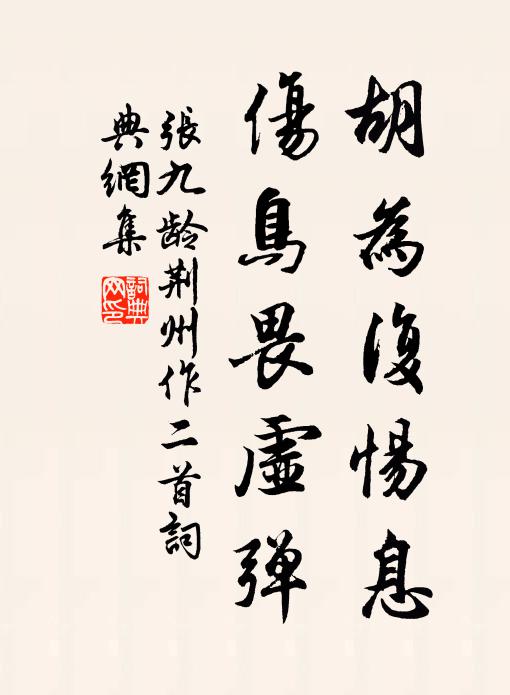 胡為復惕息
傷鳥畏虛弹
張九龄荆州作二首詞
典網集
詞典網印